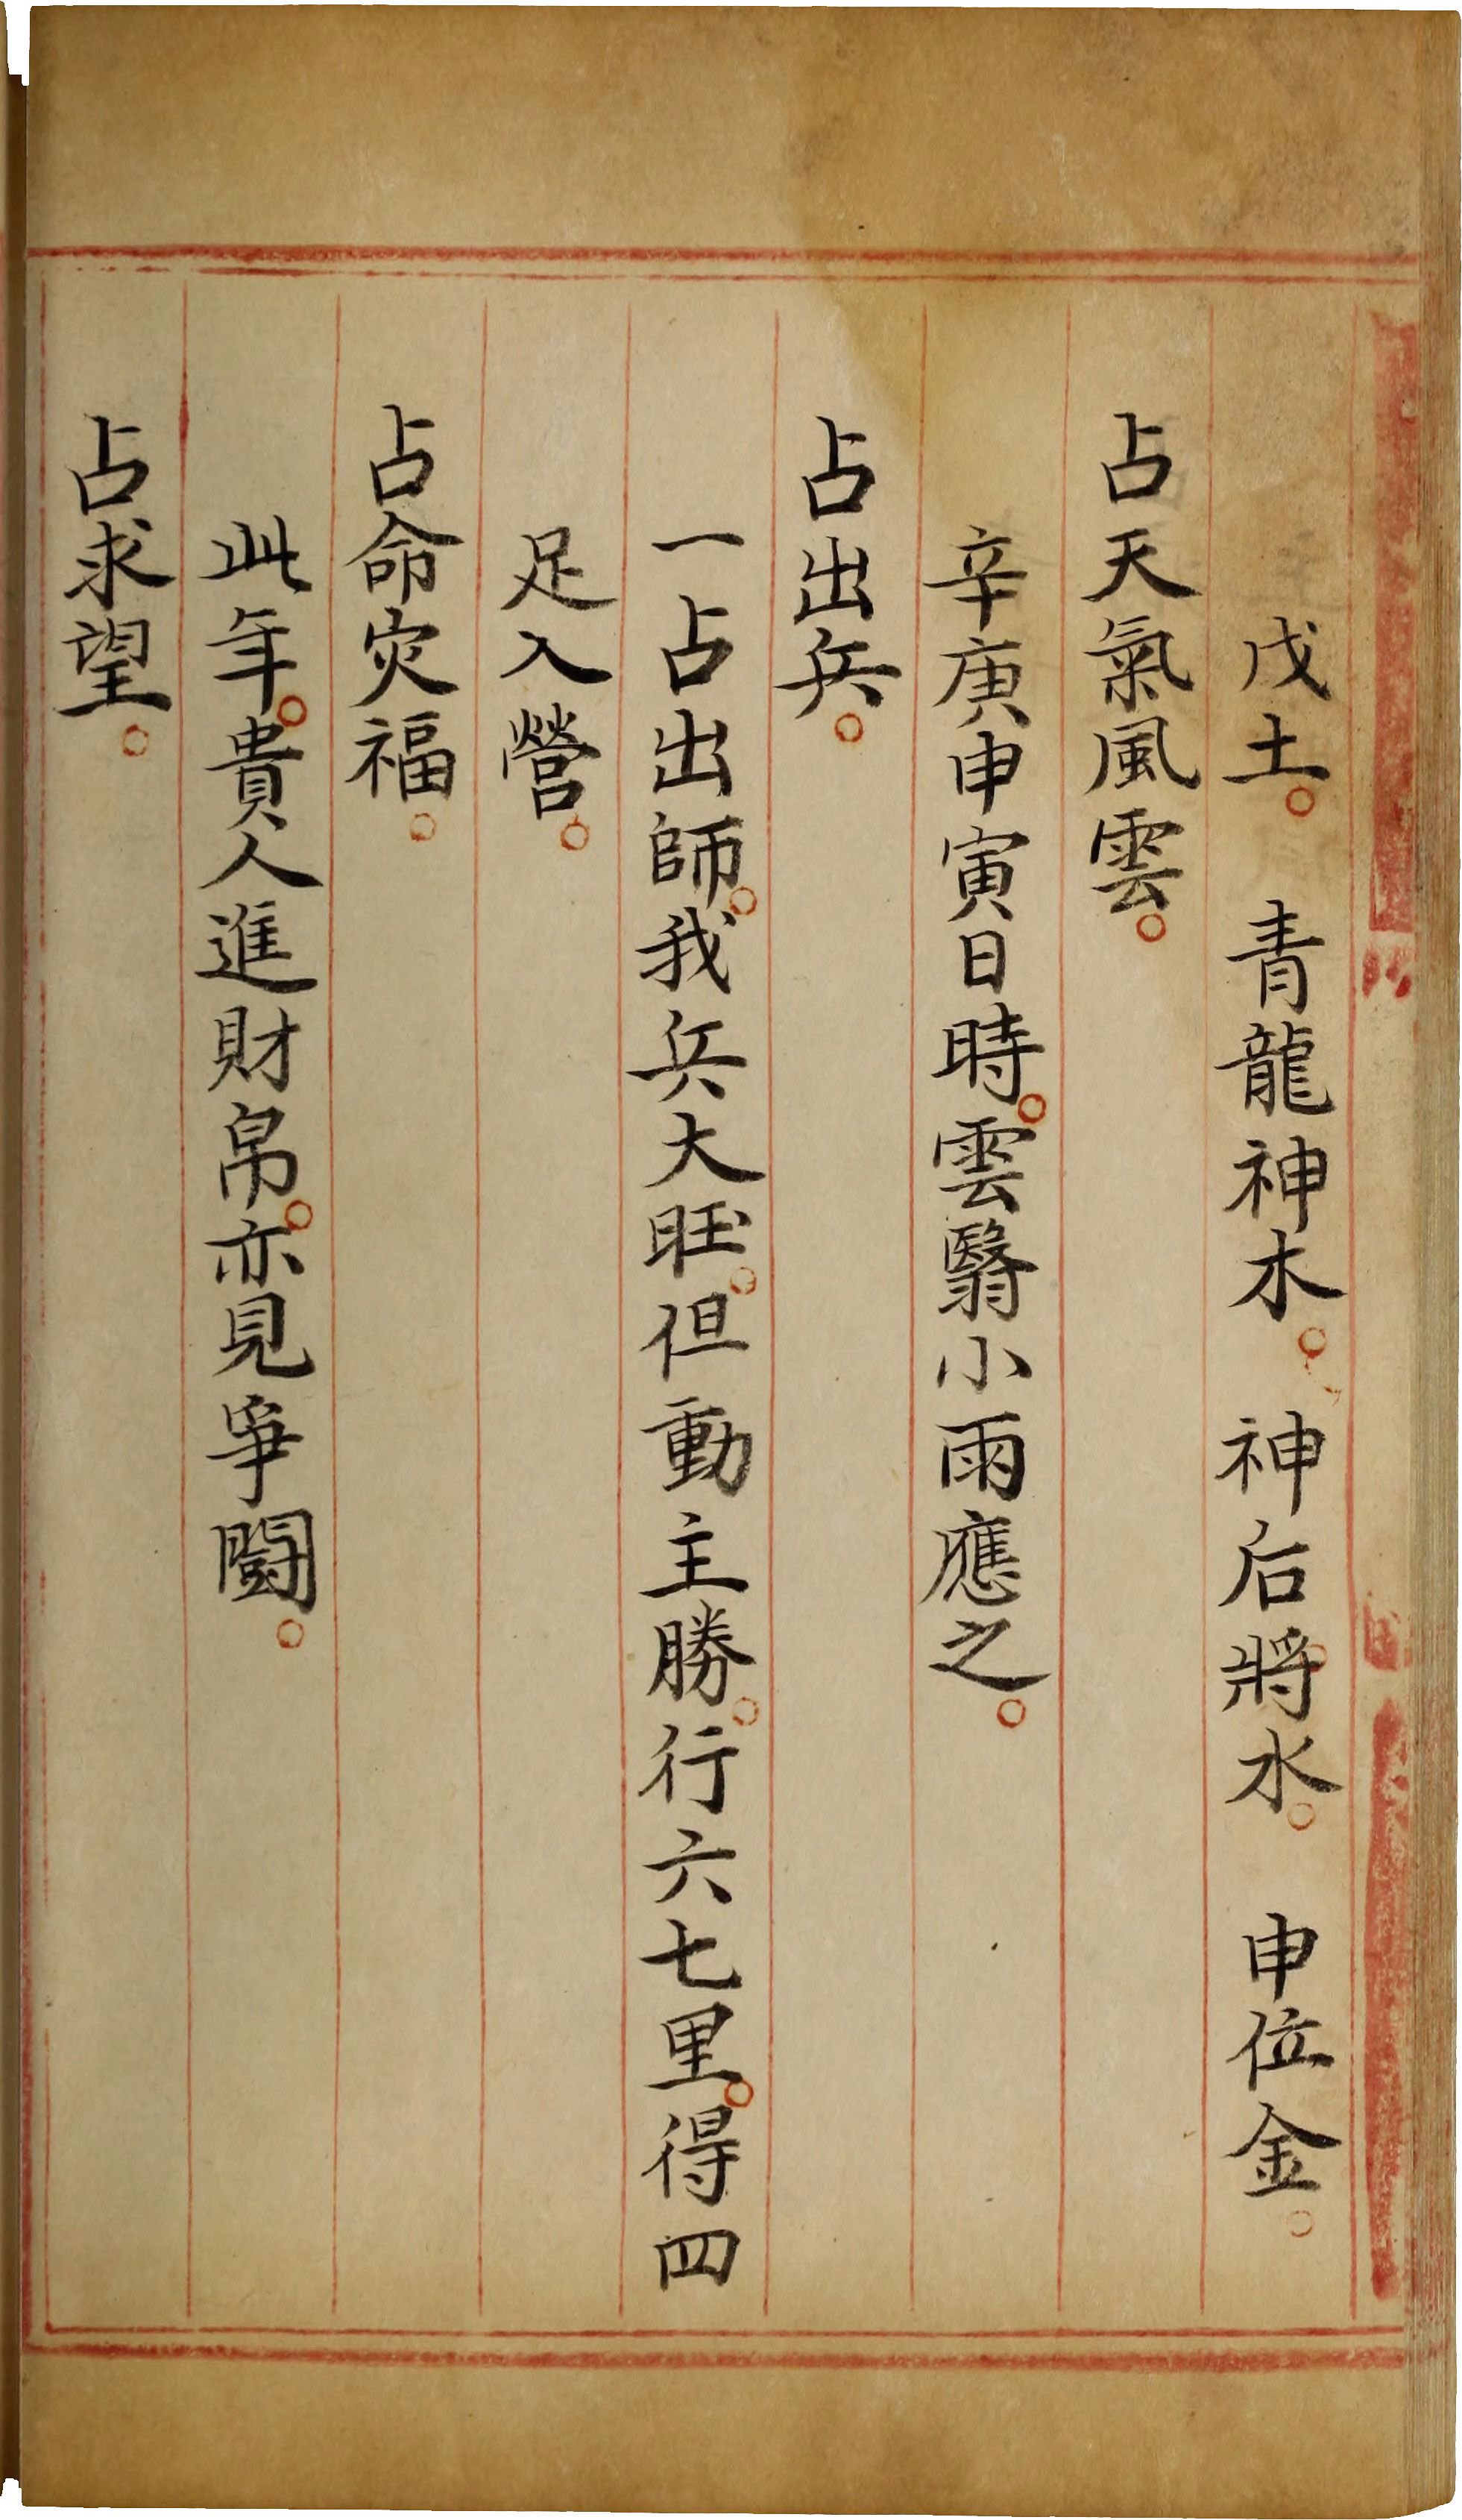 戊土。　青龍神木。　神后將水。　申位金。
占天氣風雲。
辛庚申寅日時。雲翳小雨應之。
占出兵。
一占出師。我兵大旺。但動主勝。行六七里。得四
足入營。
占命灾福。
此年。貴人進財帛。亦見爭鬪。
占求望。